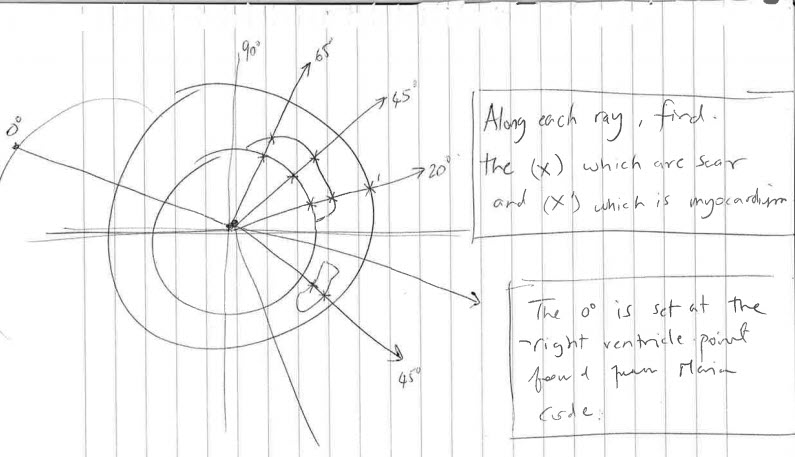 90°
65°
45°
0°
20°
45°
Along each ray, find.
the (x) which are scar
and (x') which is myocardium
The 0° is set at the
right ventricle point
found from Main
code.